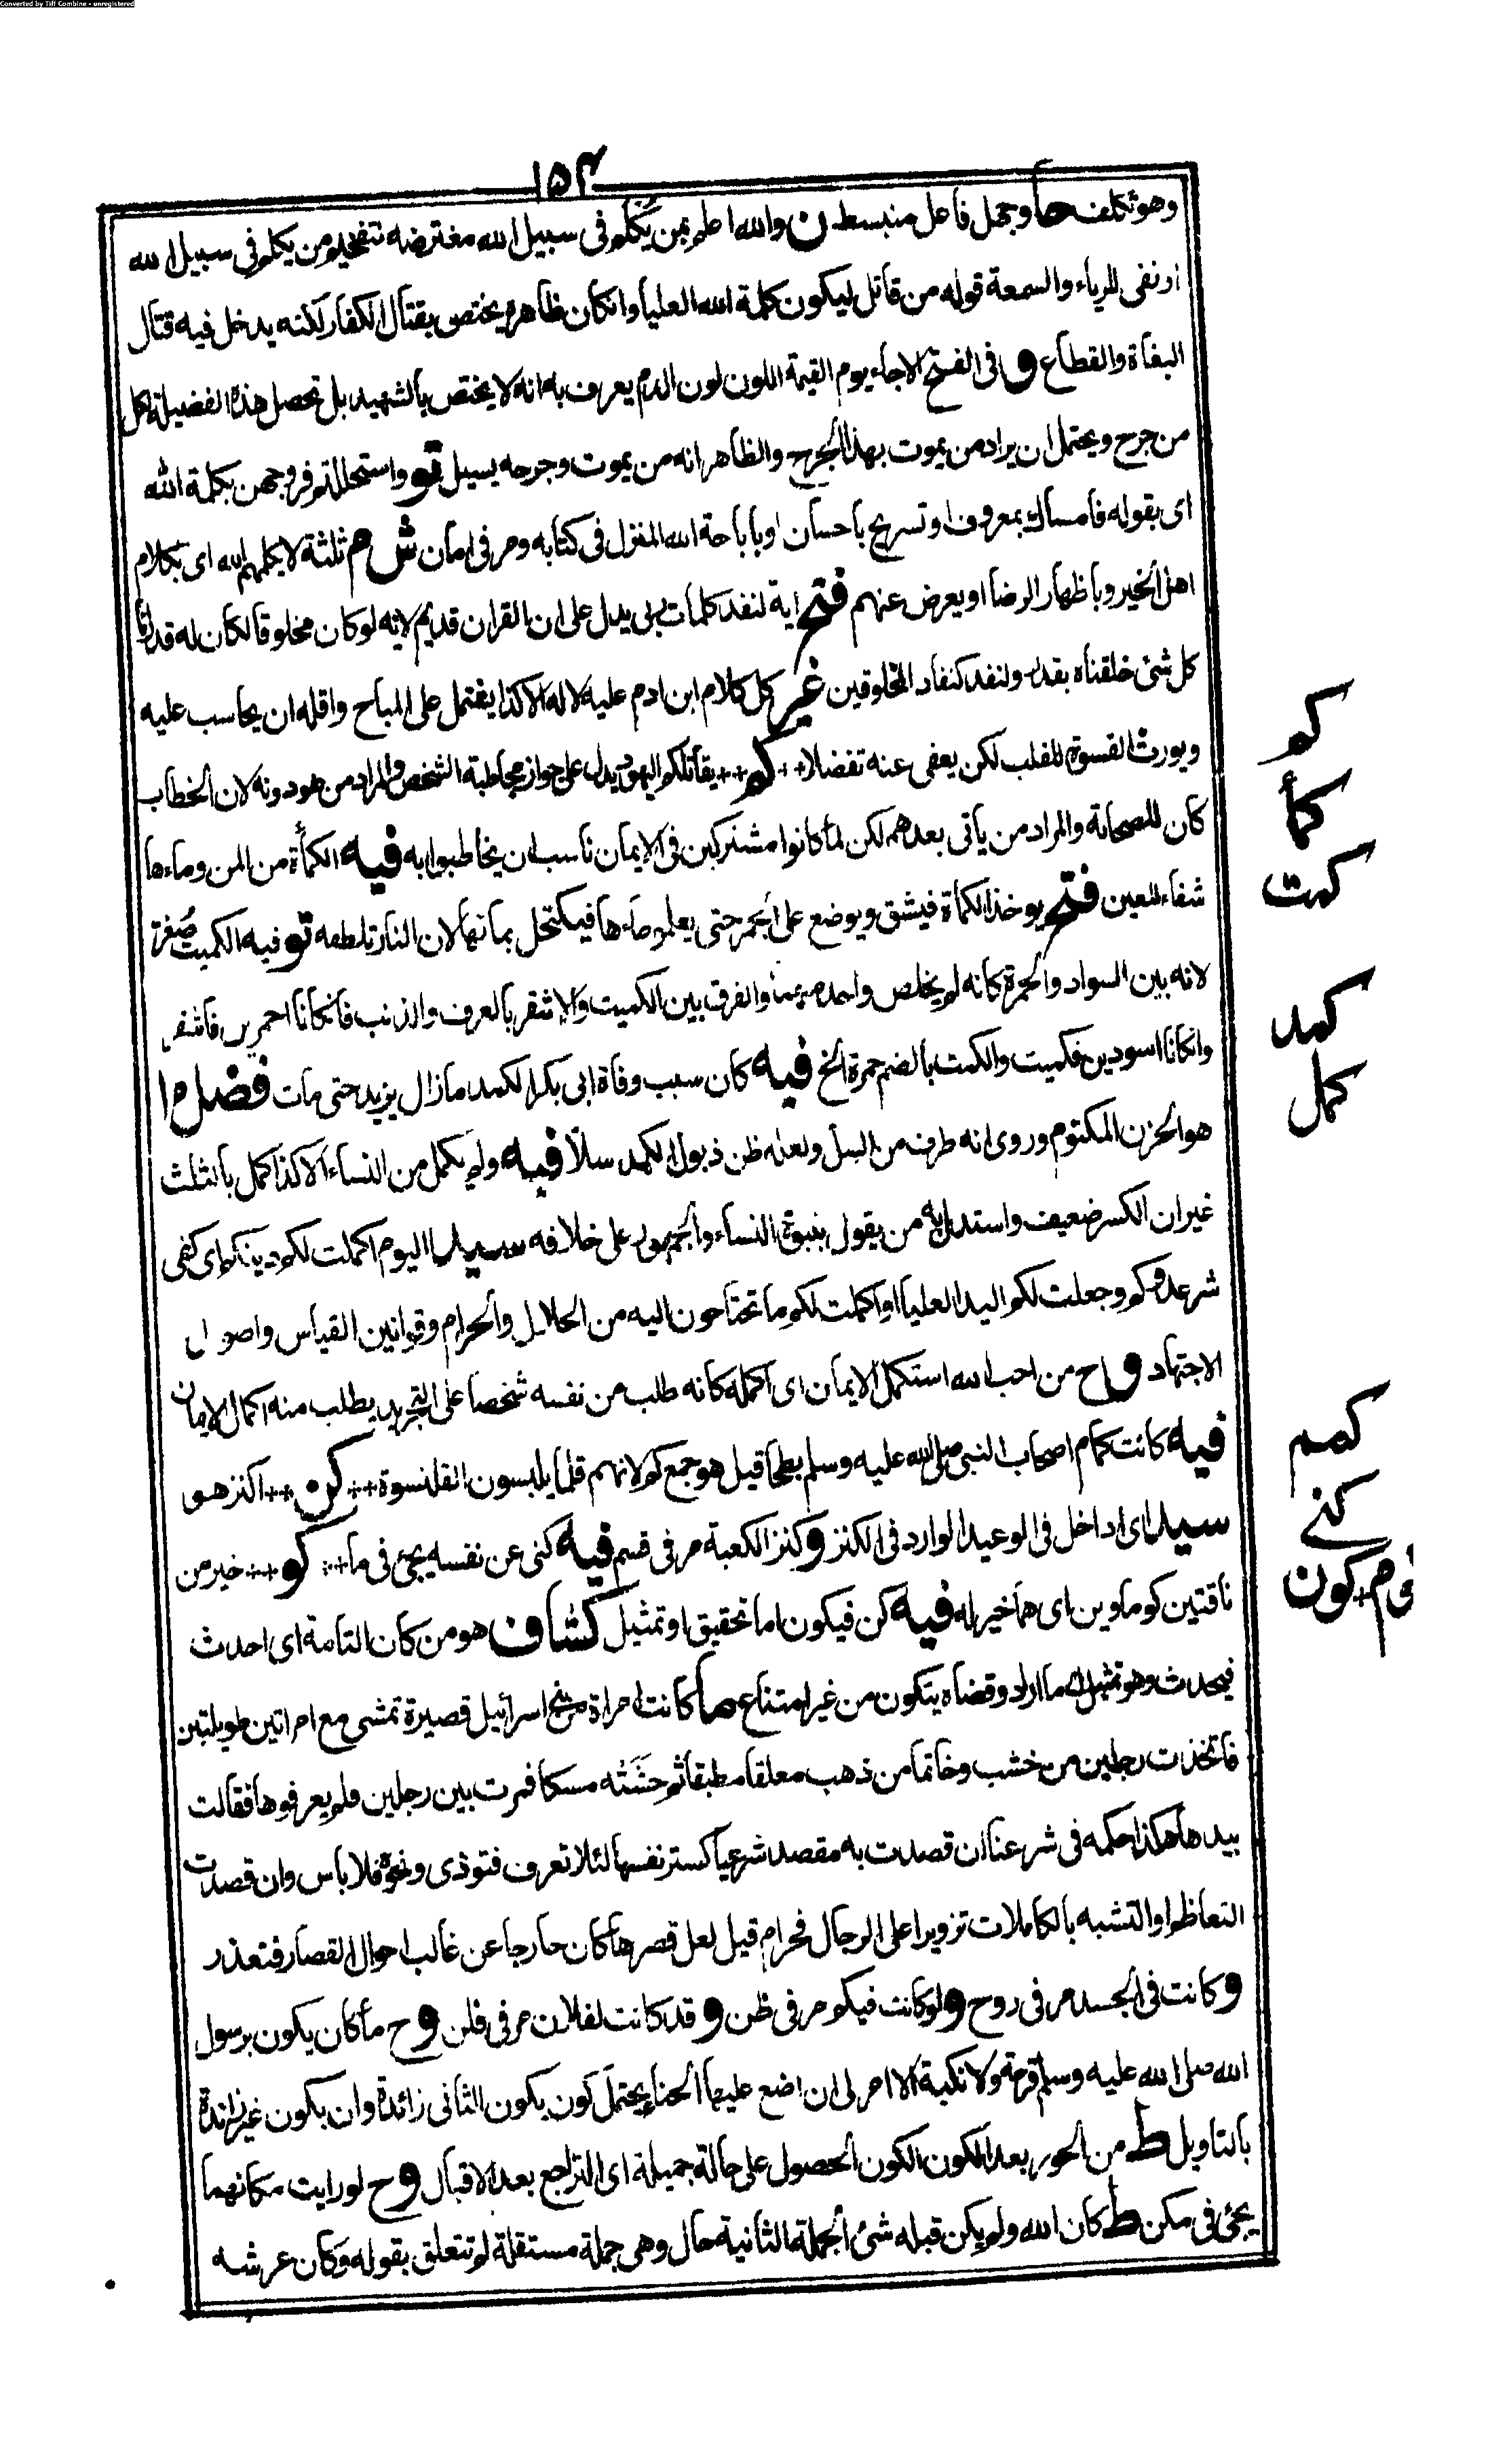 Converted by Tiff Combine - unregistered
١٥٣
وهو تكلف حاً وجمل فاعل منبسط ن والله اعلم بمن يكلم فى سبيل الله معترضه تفخيم من يكلم فى سبيل الله
او نفى للرياء والسمعة قوله من قاتل ليكون كلمة الله العليا وانكان ظاهره يختص بقتال الكفار لكنه يدخل فيه قتال
البغاة والقطاع و فى الفتح الا جاء يوم القيمة اللون لون الدم يعرف به انه لا يختص بالشهيد بل تحصل هذه الفضيلة لكل
من جرح ويحتمل ان يراد من يموت بهذا الجرح والظاهر انه من يموت وجرحه يسيل تو واستحللتم فروجهن بكلمة الله
اى بقوله فامساك بمعروف او تسريح باحسان او باباحة الله المنزل فى كتابه ومر فى امان ش م ثلثة لا يكلمهم الله اى بكلام
اهل الخير وباظهار الرضا او يعرض عنهم فتح اية لنفد كلمات ربى يدل على ان القران قديم لانه لو كان مخلوقا لكان له قدر
كل شئ خلقناه بقدر ولنفد كنفاد المخلوقين غير كل كلام ابن ادم عليه لا له الا كذا يشتمل على المباح واقله ان يحاسب عليه
ويورث القسوة للقلب لكن يعفى عنه تفضلا ++ كم ++ يقاتلكم اليهود يدل على جواز مخاطبة الشخص والمراد من هو دونه لان الخطاب
كان للصحابة والمراد من ياتى بعدهم لكن لما كانوا مشتركين فى الايمان ناسب ان يخاطبوا به فيه الكمأة من المن وماءها
شفاء للعين فتح يوخذ الكمأة فيشق ويوضع على الجمر حتى يغلى ماءها فيكتحل بمائها لان النار تلطفه تو فيه الكميت صُغّر
لانه بين السواد والحمرة كانه لم يخلص واحد منهما والفرق بين الكميت والاشقر بالعرف والذنب فانكانا احمرين فاشقر
وانكانا اسودين فكميت والكمت بالضم حمرة الخ فيه كان سبب وفاة ابى بكر الكمد ما زال يزيد حتى مات فضل م ا
هو الحزن المكتوم وروى انه طرف من السل ولعله ظن ذبول الكمد سلا فيه ولم يكمل من النساء الا كذا كمل بالثلث
غير ان الكسر ضعيف واستدل به من يقول بنبوة النساء والجمهور على خلافه سيد اليوم اكملت لكم دينكم اى كفى
شر عدوكم وجعلت لكم اليد العليا او اكملت لكم ما تحتاجون اليه من الحلال والحرام وقوانين القياس واصول
الاجتهاد و ح من احب الله استكمل الايمان اى اكمله كانه طلب من نفسه شخصا على التجريد يطلب منه اكمال الايمان
فيه كانت كمام اصحاب النبى صلى الله عليه وسلم بطحا قيل هو جمع كم لانهم قلما يلبسون القلنسوة ++ كن ++ اكنز هو
سيد اى اداخل فى الوعيد الوارد فى الكنز و كنز الكعبة مر فى قسم فيه كنى عن نفسه يجئ فى ما ++ كو ++ خير من
ناقتين كوماوين اى هما خير له فيه كن فيكون اما تحقيق او تمثيل كشاف هو من كان التامة اى احدث
فيحدث وهو تمثيل لان ما اراد وقضاه يتكون من غير امتناع ما كانت امراة من بنى اسرائيل قصيرة تمشى مع امراتين طويلتين
فاتخذت رجلين من خشب وخاتما من ذهب معلقا مطبقا ثم حشته مسكا فمرت بين رجلين فلم يعرفوها فقالت
بيدها هكذا حكمه فى شرعنا ان قصدت به مقصدا شرعيا كستر نفسها لئلا تعرف فتوذى ونحوه فلا باس وان قصدت
التعاظم او التشبه بالكاملات تزويرا على الرجال فحرام قيل لعل قصرها كان خارجا عن غالب احوال القصار فتعذر
و كانت فى الجسد مر فى روح و لو كانت فيكم مر فى ظن و قد كانت لفلان مر فى فلن و ح ما كان يكون برسول
الله صلى الله عليه وسلم قرحة ولا نكبة الا امر لى ان اضع عليها الحناء يحتمل كون يكون الثانى زائدة وان يكون غير زائدة
بالتاويل ط من الحور بعد الكون الكون الحصول على حالة جميلة اى التراجع بعد الاقبال و ح لو رايت مكانهما
يجئ فى مكن ط كان الله ولم يكن قبله شئ الجملة الثانية حال وهى جملة مستقلة لم تتعلق بقوله وكان عرشه
كم
كمأ
كمت
كمد
كمل
كمم
كنے
كون